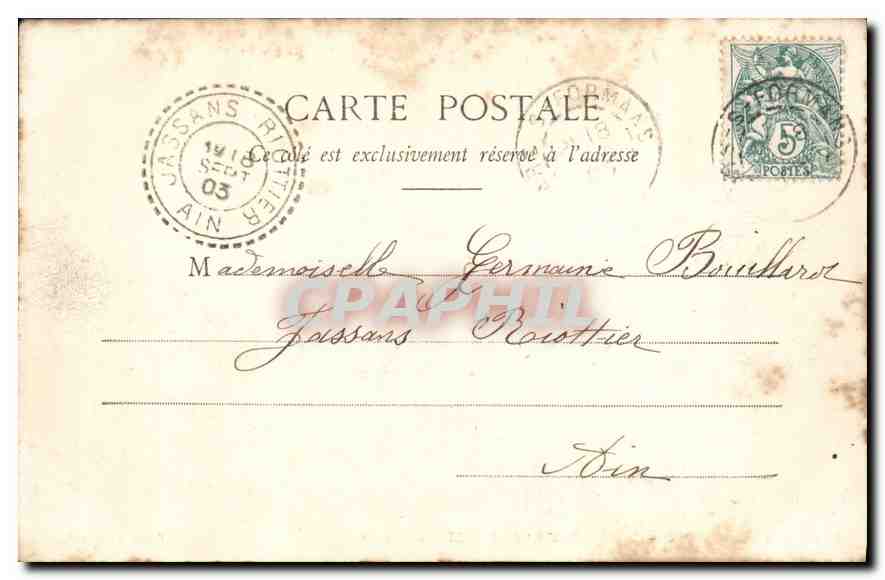 CARTE POSTALE
Ce côté est exclusivement réservé à l'adresse
JASSANS RIOTTIER
18
SEPT
03
AIN
FORMANS
18
5c
POSTES
Mademoiselle Germaine
Jassans Riottier
Ain
CPAPHIL